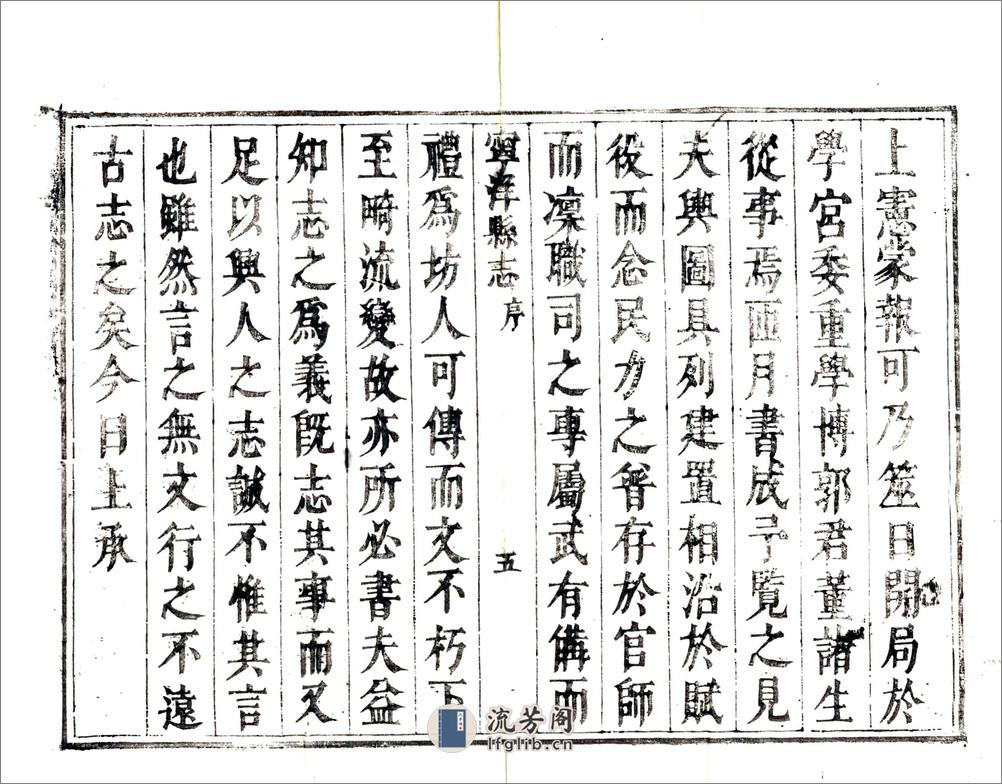 上憲蒙報可乃筮日開局於
學宮委重學博郭君董諸生
從事焉匝月書成予覧之見
夫輿圖具列建置相沿於賦
役而念民力之普存於官師
而凛職司之專屬武有備而
寧海縣志 序 五
禮爲坊人可傳而文不朽下
至畸流變故亦所必書夫益
知志之爲義既志其事而又
足以興人之志誠不惟其言
也雖然言之無文行之不遠
古志之矣今日上承
流芳阁
lfglib.cn